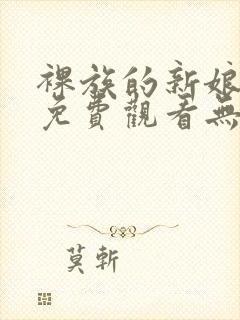 裸族的新娘
免費觀看無
莫斬